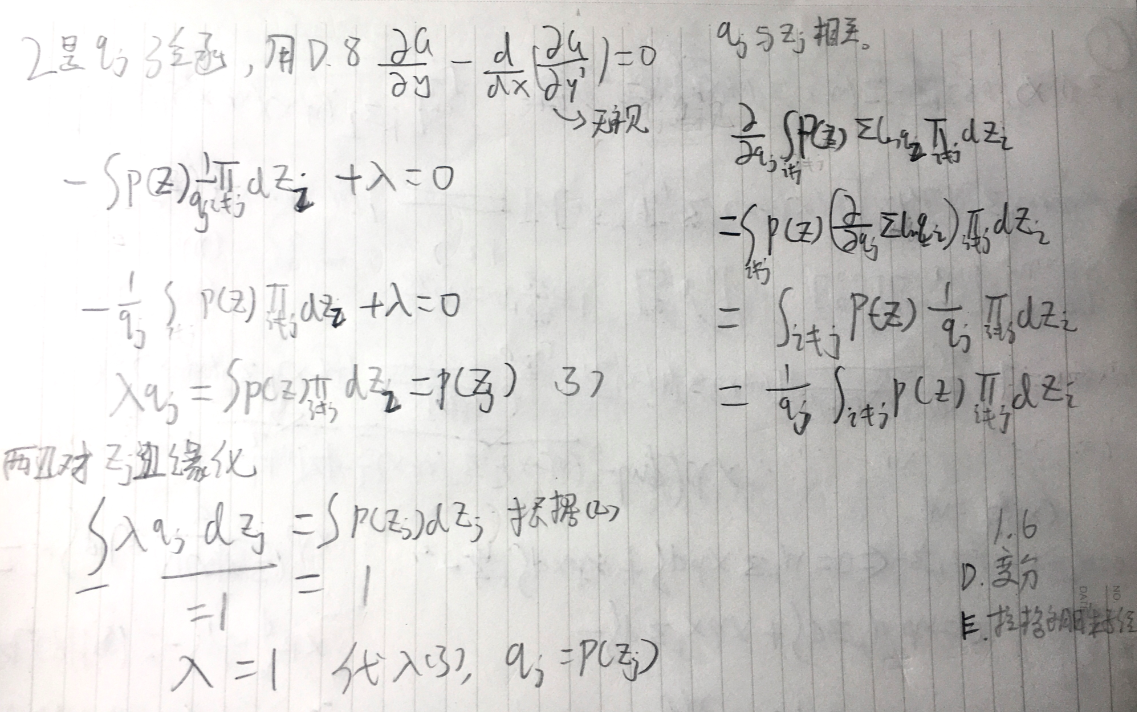 L是qj的泛函,用D.8 ∂G/∂y - d/dx(∂G/∂y')=0
→无视
-∫P(Z) 1/qj ∏i≠j dZi +λ=0
-1/qj ∫P(Z) ∏i≠j dZi +λ=0
λqj = ∫p(Z)∏i≠j dZi = p(Zj) (3)
两边对Zj边缘化
∫λqj dZj = ∫P(Zj)dZj 根据(2)
=1 = 1
λ=1 代入(3), qj=P(Zj)
qj与Zj相关。
∂/∂qj ∫i≠j P(Z) Σln qi ∏i≠j dZi
=∫i≠j p(Z)(∂/∂qj Σln qi)∏i≠j dZi
= ∫i≠j P(Z) 1/qj ∏i≠j dZi
= 1/qj ∫i≠j p(Z) ∏i≠j dZi
1.6
D.变分
E.拉格朗日